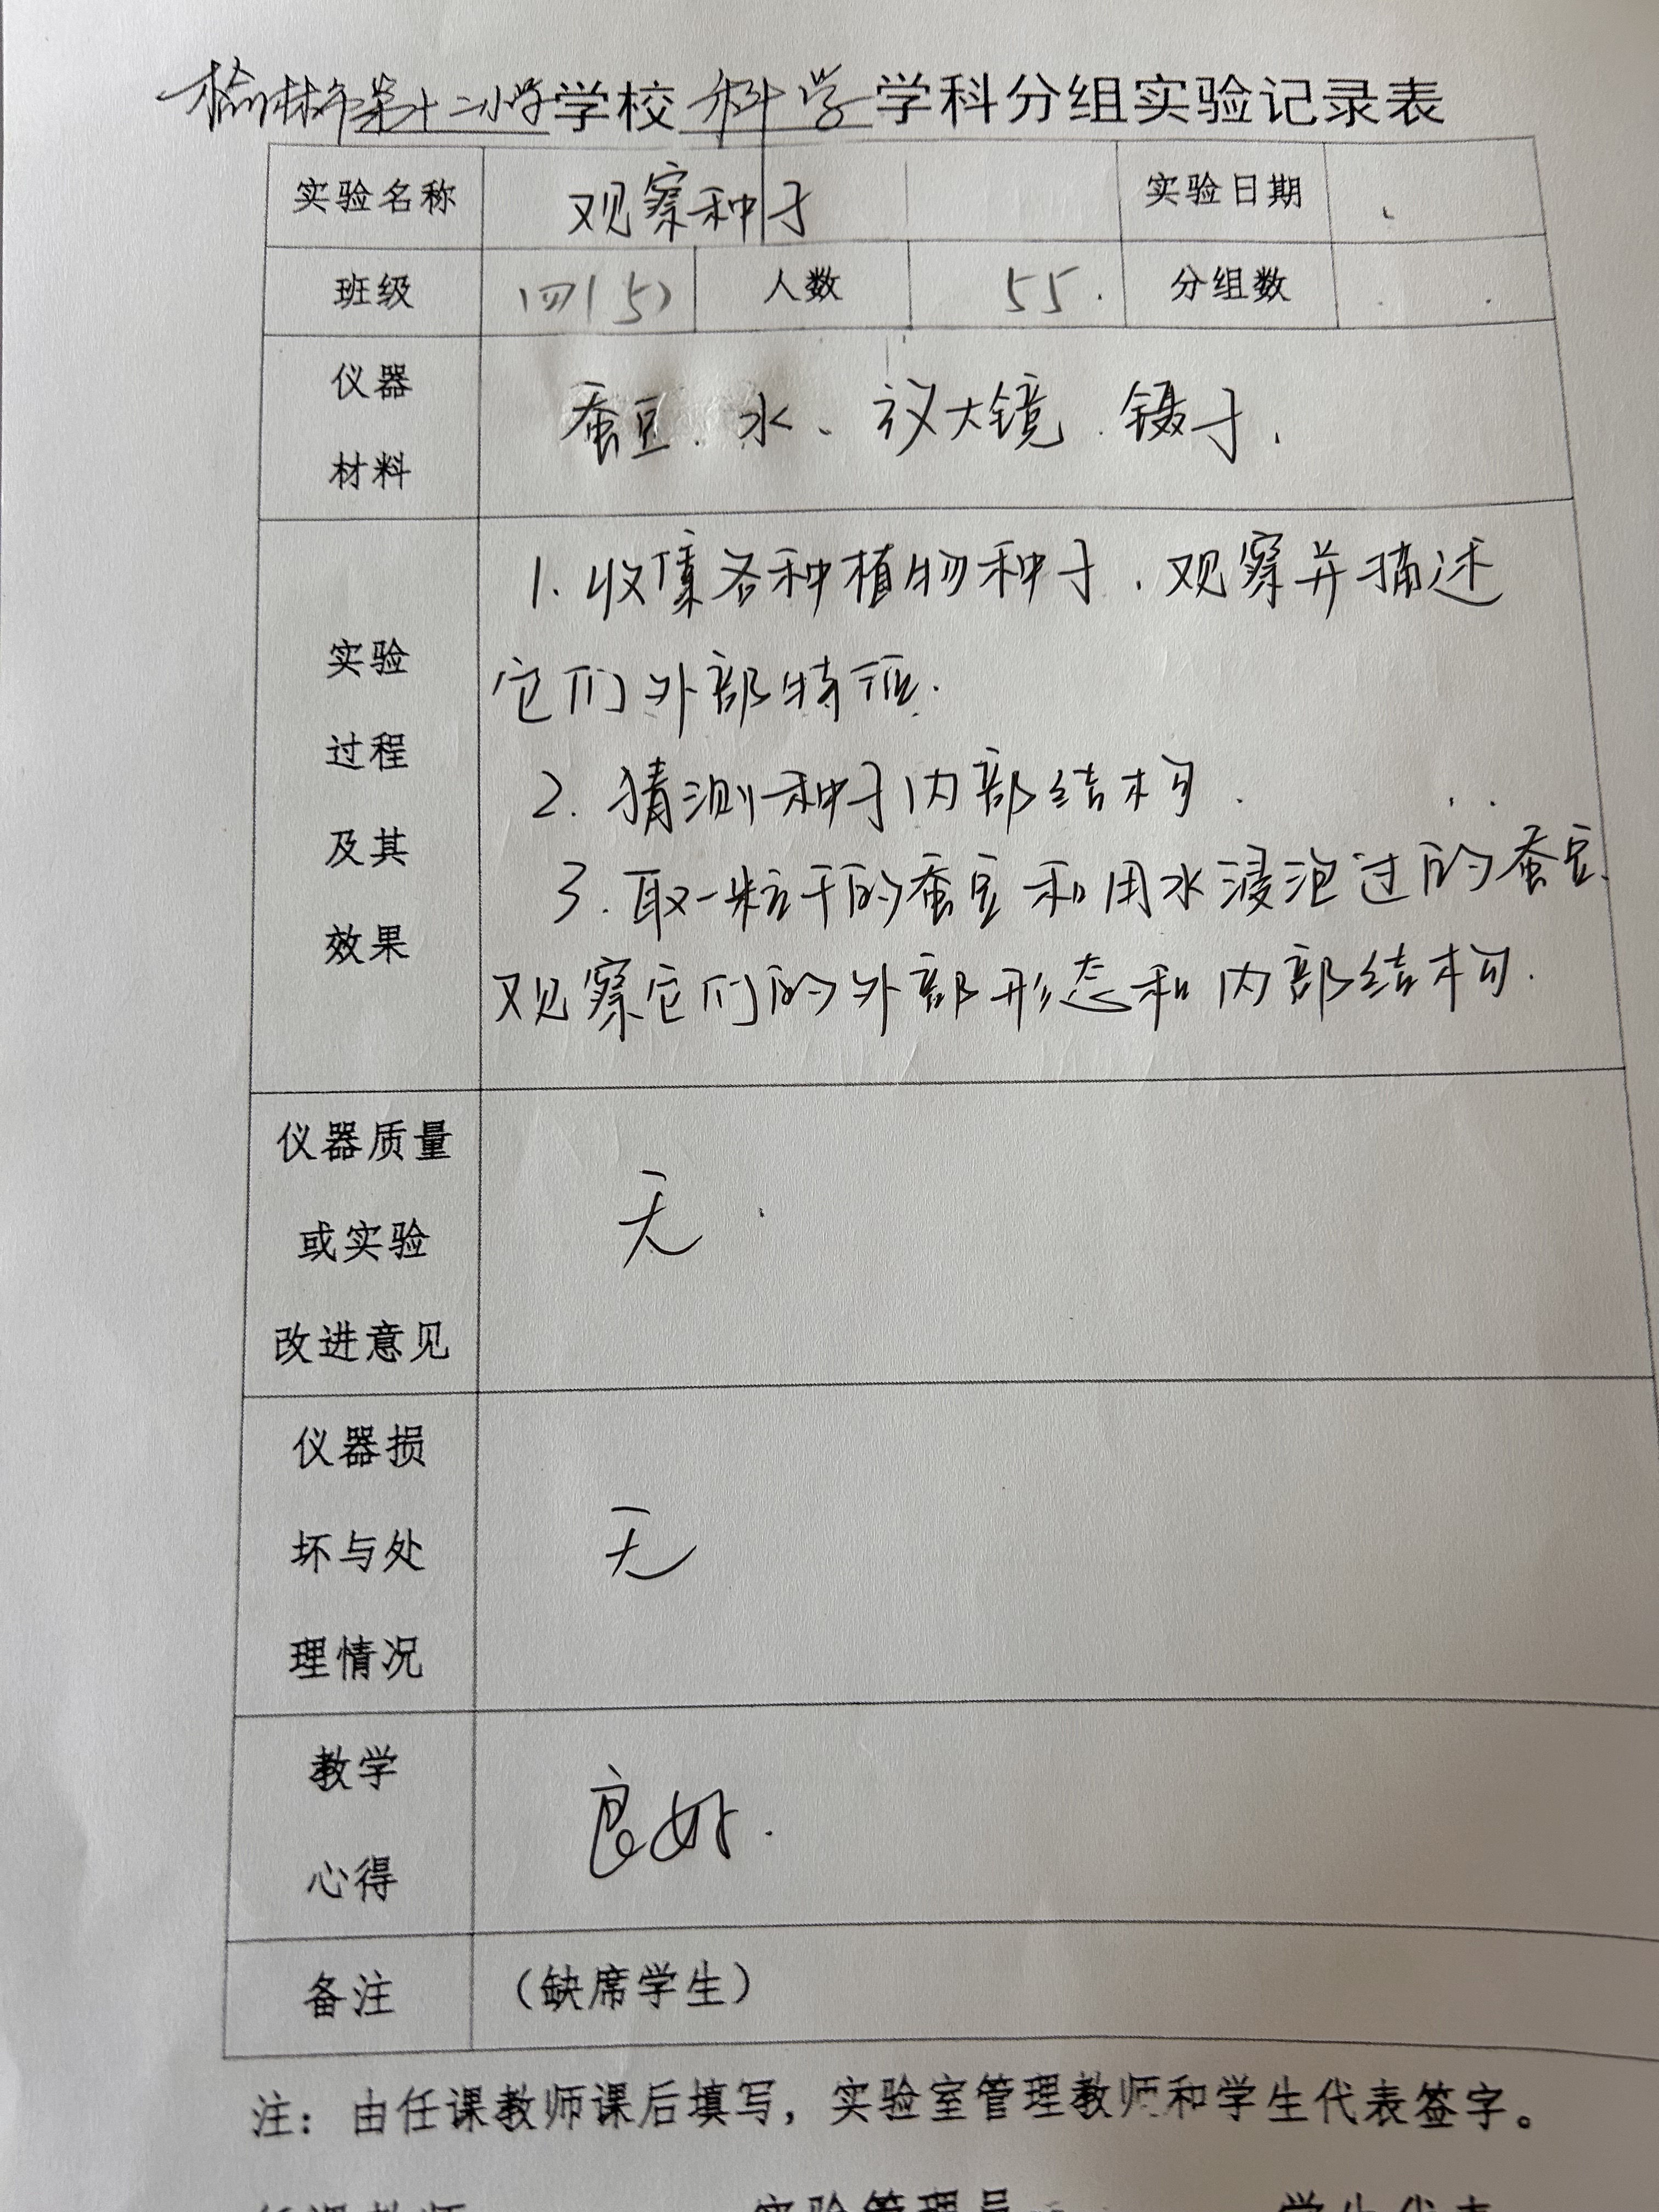 榆林市第十二小学学校科学学科分组实验记录表
实验名称 观察种子 实验日期
班级 四(5) 人数 55. 分组数
仪器
材料
蚕豆、水、放大镜、镊子、
实验
过程
及其
效果
1. 收集各种植物种子、观察并描述
它们外部特征.
2. 猜测种子内部结构.
3. 取一粒干的蚕豆和用水浸泡过的蚕豆.
观察它们的外部形态和内部结构.
仪器质量
或实验
改进意见
无.
仪器损
坏与处
理情况
无
教学
心得
良好.
备注 (缺席学生)
注：由任课教师课后填写，实验室管理教师和学生代表签字。
任课教师 实验管理员 学生代表